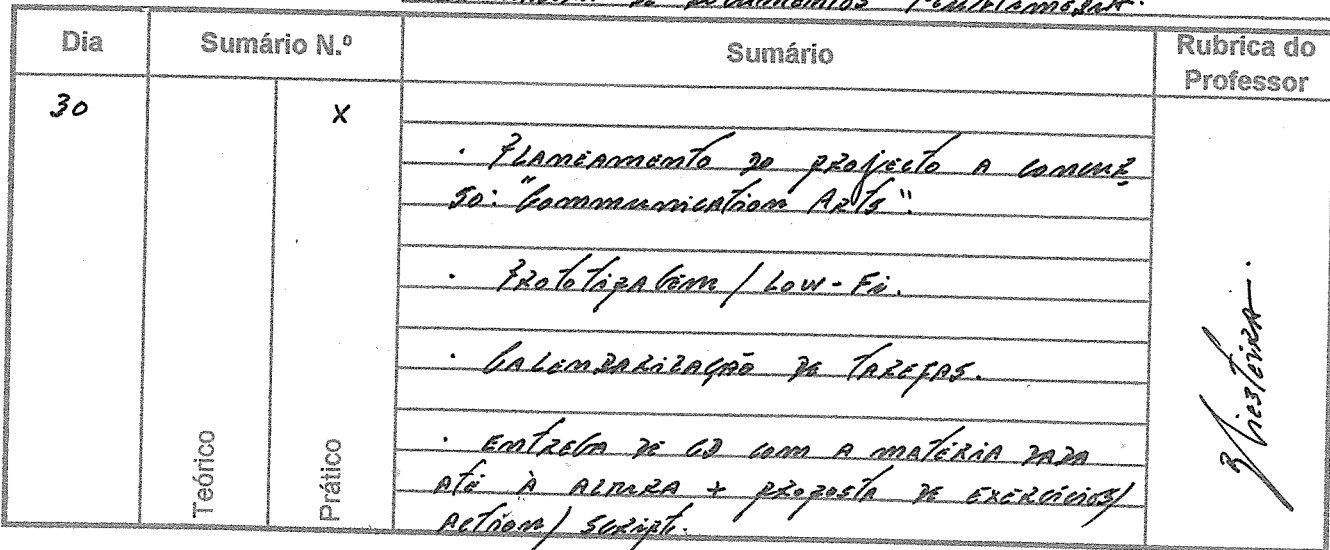 de documentos
Dia
Sumário N.º
Sumário
Rubrica do
Professor
30
X
. Planeamento do projecto a concur
so: "Communication Arts".
. Prototipagem / Low-Fi.
. Calendarização de tarefas.
. Entrega de CD com a matéria dada
até à altura + proposta de exercícios/
Action/Script.
Teórico
Prático